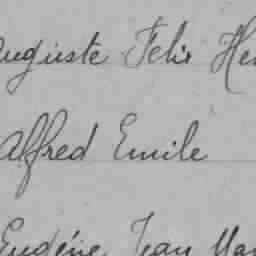 Auguste Felix
Alfred Emile
Eugénie Jean